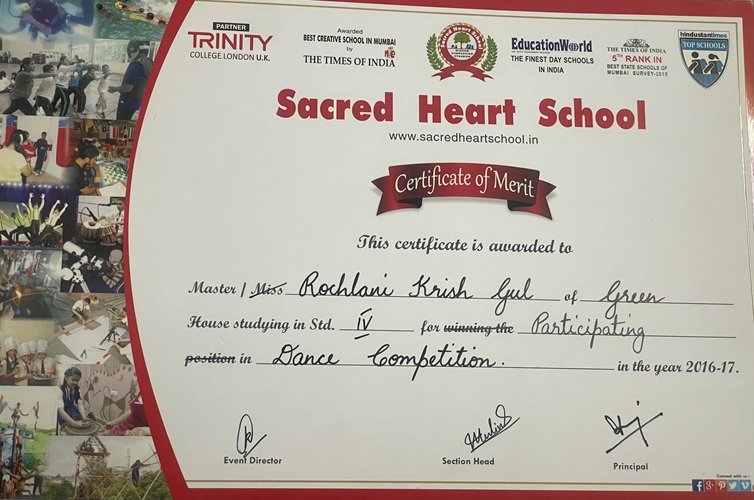 PARTNER
TRINITY
COLLEGE LONDON U.K.
Awarded
BEST CREATIVE SCHOOL IN MUMBAI
by
THE TIMES OF INDIA
Sacred Heart School
EducationWorld
THE FINEST DAY SCHOOLS
IN INDIA
THE TIMES OF INDIA
5TH RANK IN
BEST STATE SCHOOLS OF
MUMBAI SURVEY-2015
hindustantimes
TOP SCHOOLS
Sacred Heart School
www.sacredheartschool.in
Certificate of Merit
This certificate is awarded to
Master / Miss Rochlani Krish Gul of Green
House studying in Std. IV for winning the Participating
position in Dance Competition. in the year 2016-17.
Event Director
Section Head
Principal
Connect with us :